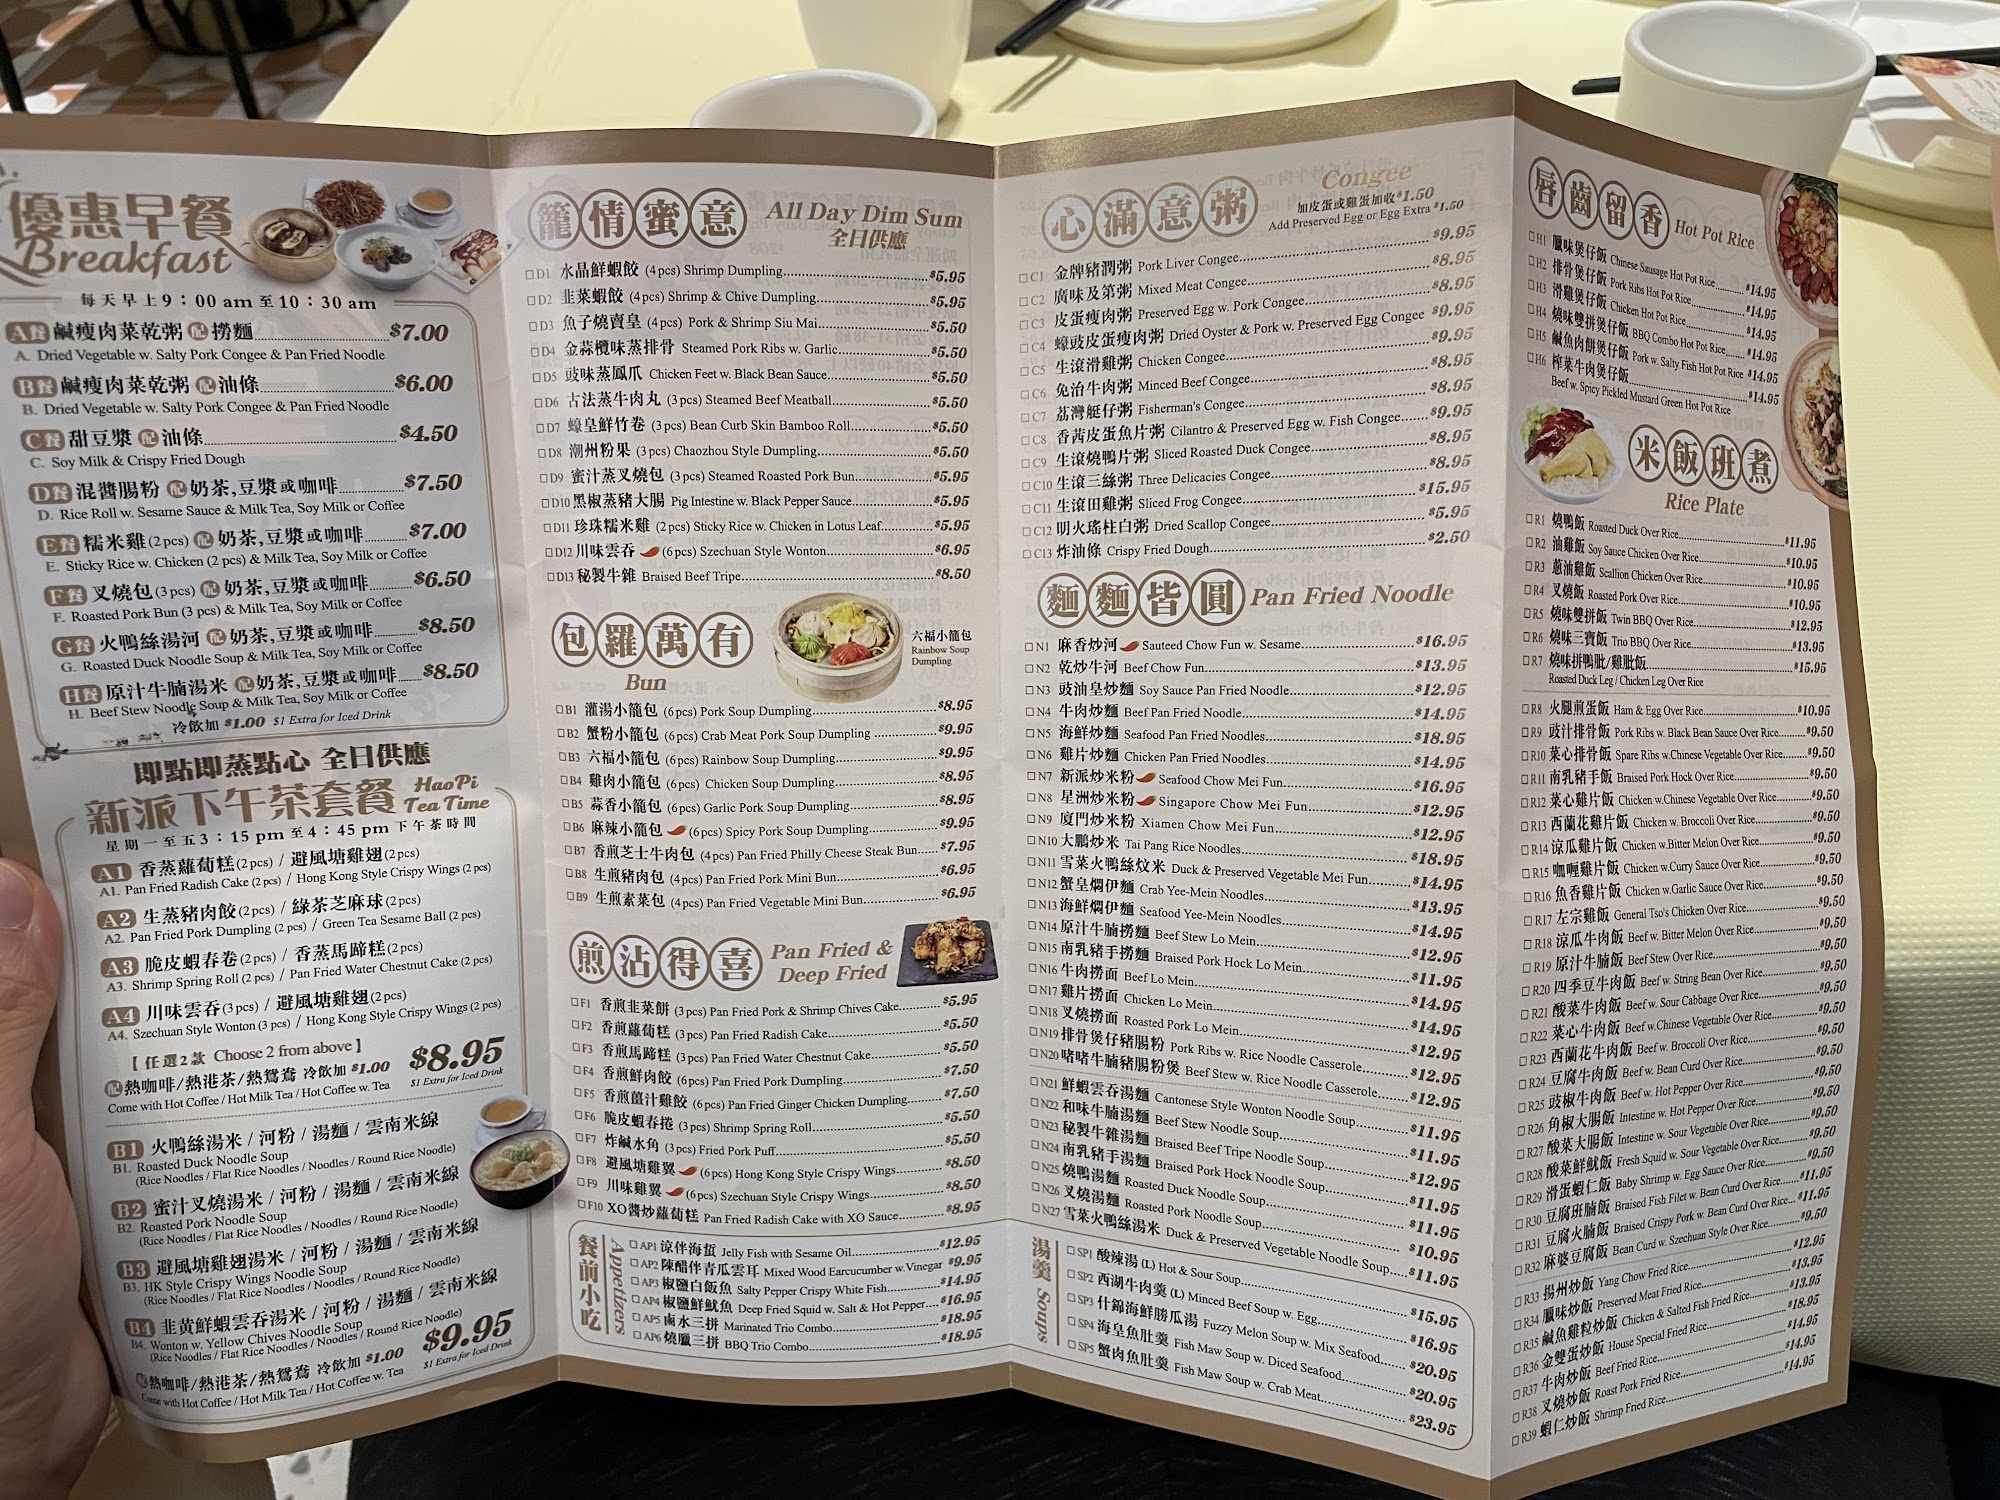 優惠早餐
Breakfast
每天早上9：00 am 至10：30 am
A餐 鹹瘦肉菜乾粥 配 撈麵 $7.00
A. Dried Vegetable w. Salty Pork Congee & Pan Fried Noodle
B餐 鹹瘦肉菜乾粥 配 油條 $6.00
B. Dried Vegetable w. Salty Pork Congee & Pan Fried Noodle
C餐 甜豆漿 配 油條 $4.50
C. Soy Milk & Crispy Fried Dough
D餐 混醬腸粉 配 奶茶,豆漿或咖啡 $7.50
D. Rice Roll w. Sesame Sauce & Milk Tea, Soy Milk or Coffee
E餐 糯米雞(2 pcs) 配 奶茶,豆漿或咖啡 $7.00
E. Sticky Rice w. Chicken (2 pcs) & Milk Tea, Soy Milk or Coffee
F餐 叉燒包(3 pcs) 配 奶茶,豆漿或咖啡 $6.50
F. Roasted Pork Bun (3 pcs) & Milk Tea, Soy Milk or Coffee
G餐 火鴨絲湯河 配 奶茶,豆漿或咖啡 $8.50
G. Roasted Duck Noodle Soup & Milk Tea, Soy Milk or Coffee
H餐 原汁牛腩湯米 配 奶茶,豆漿或咖啡 $8.50
H. Beef Stew Noodle Soup & Milk Tea, Soy Milk or Coffee
冷飲加 $1.00 $1 Extra for Iced Drink
即點即蒸點心 全日供應
新派下午茶套餐 HaoPi Tea Time
星期一至五3：15 pm 至4：45 pm 下午茶時間
A1 香蒸蘿蔔糕(2 pcs) / 避風塘雞翅(2 pcs)
A1. Pan Fried Radish Cake (2 pcs) / Hong Kong Style Crispy Wings (2 pcs)
A2 生蒸豬肉餃(2 pcs) / 綠茶芝麻球(2 pcs)
A2. Pan Fried Pork Dumpling (2 pcs) / Green Tea Sesame Ball (2 pcs)
A3 脆皮蝦春卷(2 pcs) / 香蒸馬蹄糕(2 pcs)
A3. Shrimp Spring Roll (2 pcs) / Pan Fried Water Chestnut Cake (2 pcs)
A4 川味雲吞(3 pcs) / 避風塘雞翅(2 pcs)
A4. Szechuan Style Wonton (3 pcs) / Hong Kong Style Crispy Wings (2 pcs)
【 任選2款 Choose 2 from above 】 $8.95
配 熱咖啡/熱港茶/熱鴛鴦 冷飲加 $1.00 $1 Extra for Iced Drink
Come with Hot Coffee / Hot Milk Tea / Hot Coffee w. Tea
B1 火鴨絲湯米 / 河粉 / 湯麵 / 雲南米線
B1. Roasted Duck Noodle Soup
(Rice Noodles / Flat Rice Noodles / Noodles / Round Rice Noodle)
B2 蜜汁叉燒湯米 / 河粉 / 湯麵 / 雲南米線
B2. Roasted Pork Noodle Soup
(Rice Noodles / Flat Rice Noodles / Noodles / Round Rice Noodle)
B3 避風塘雞翅湯米 / 河粉 / 湯麵 / 雲南米線
B3. HK Style Crispy Wings Noodle Soup
(Rice Noodles / Flat Rice Noodles / Noodles / Round Rice Noodle)
B4 韭黄鮮蝦雲吞湯米 / 河粉 / 湯麵 / 雲南米線
B4. Wonton w. Yellow Chives Noodle Soup
(Rice Noodles / Flat Rice Noodles / Noodles / Round Rice Noodle) $9.95
配 熱咖啡/熱港茶/熱鴛鴦 冷飲加 $1.00 $1 Extra for Iced Drink
Come with Hot Coffee / Hot Milk Tea / Hot Coffee w. Tea
籠情蜜意 All Day Dim Sum
全日供應
D1 水晶鮮蝦餃 (4 pcs) Shrimp Dumpling $5.95
D2 韭菜蝦餃 (4 pcs) Shrimp & Chive Dumpling $5.95
D3 魚子燒賣皇 (4 pcs) Pork & Shrimp Siu Mai $5.50
D4 金蒜欖味蒸排骨 Steamed Pork Ribs w. Garlic $5.50
D5 豉味蒸鳳爪 Chicken Feet w. Black Bean Sauce $5.50
D6 古法蒸牛肉丸 (3 pcs) Steamed Beef Meatball $5.50
D7 蠔皇鮮竹卷 (3 pcs) Bean Curb Skin Bamboo Roll $5.50
D8 潮州粉果 (3 pcs) Chaozhou Style Dumpling $5.50
D9 蜜汁蒸叉燒包 (3 pcs) Steamed Roasted Pork Bun $5.95
D10 黑椒蒸豬大腸 Pig Intestine w. Black Pepper Sauce $5.95
D11 珍珠糯米雞 (2 pcs) Sticky Rice w. Chicken in Lotus Leaf $5.95
D12 川味雲吞 (6 pcs) Szechuan Style Wonton $6.95
D13 秘製牛雜 Braised Beef Tripe $8.50
包羅萬有
Bun
六福小籠包
Rainbow Soup
Dumpling
B1 灌湯小籠包 (6 pcs) Pork Soup Dumpling $8.95
B2 蟹粉小籠包 (6 pcs) Crab Meat Pork Soup Dumpling $9.95
B3 六福小籠包 (6 pcs) Rainbow Soup Dumpling $9.95
B4 雞肉小籠包 (6 pcs) Chicken Soup Dumpling $8.95
B5 蒜香小籠包 (6 pcs) Garlic Pork Soup Dumpling $8.95
B6 麻辣小籠包 (6 pcs) Spicy Pork Soup Dumpling $9.95
B7 香煎芝士牛肉包 (4 pcs) Pan Fried Philly Cheese Steak Bun $7.95
B8 生煎豬肉包 (4 pcs) Pan Fried Pork Mini Bun $6.95
B9 生煎素菜包 (4 pcs) Pan Fried Vegetable Mini Bun $6.95
煎沾得喜 Pan Fried & Deep Fried
F1 香煎韭菜餅 (3 pcs) Pan Fried Pork & Shrimp Chives Cake $5.95
F2 香煎蘿蔔糕 (3 pcs) Pan Fried Radish Cake $5.50
F3 香煎馬蹄糕 (3 pcs) Pan Fried Water Chestnut Cake $5.50
F4 香煎鮮肉餃 (6 pcs) Pan Fried Pork Dumpling $7.50
F5 香煎薑汁雞餃 (6 pcs) Pan Fried Ginger Chicken Dumpling $7.50
F6 脆皮蝦春捲 (3 pcs) Shrimp Spring Roll $5.50
F7 炸鹹水角 (3 pcs) Fried Pork Puff $5.50
F8 避風塘雞翼 (6 pcs) Hong Kong Style Crispy Wings $8.50
F9 川味雞翼 (6 pcs) Szechuan Style Crispy Wings $8.50
F10 XO醬炒蘿蔔糕 Pan Fried Radish Cake with XO Sauce $8.95
餐前小吃 Appetizers
AP1 涼伴海蜇 Jelly Fish with Sesame Oil $12.95
AP2 陳醋伴青瓜雲耳 Mixed Wood Earcucumber w.Vinegar $9.95
AP3 椒鹽白飯魚 Salty Pepper Crispy White Fish $14.95
AP4 椒鹽鮮魷魚 Deep Fried Squid w. Salt & Hot Pepper $16.95
AP5 鹵水三拼 Marinated Trio Combo $18.95
AP6 燒臘三拼 BBQ Trio Combo $18.95
心滿意粥 Congee
加皮蛋或雞蛋加收 $1.50
Add Preserved Egg or Egg Extra $1.50
C1 金牌豬潤粥 Pork Liver Congee $9.95
C2 廣味及第粥 Mixed Meat Congee $8.95
C3 皮蛋瘦肉粥 Preserved Egg w. Pork Congee $8.95
C4 蠔豉皮蛋瘦肉粥 Dried Oyster & Pork w. Preserved Egg Congee $9.95
C5 生滾滑雞粥 Chicken Congee $8.95
C6 免治牛肉粥 Minced Beef Congee $8.95
C7 荔灣艇仔粥 Fisherman's Congee $8.95
C8 香茜皮蛋魚片粥 Cilantro & Preserved Egg w. Fish Congee $9.95
C9 生滾燒鴨片粥 Sliced Roasted Duck Congee $8.95
C10 生滾三絲粥 Three Delicacies Congee $8.95
C11 生滾田雞粥 Sliced Frog Congee $15.95
C12 明火瑤柱白粥 Dried Scallop Congee $5.95
C13 炸油條 Crispy Fried Dough $2.50
麵麵皆圓 Pan Fried Noodle
N1 麻香炒河 Sauteed Chow Fun w. Sesame $16.95
N2 乾炒牛河 Beef Chow Fun $13.95
N3 豉油皇炒麵 Soy Sauce Pan Fried Noodle $12.95
N4 牛肉炒麵 Beef Pan Fried Noodle $14.95
N5 海鮮炒麵 Seafood Pan Fried Noodles $18.95
N6 雞片炒麵 Chicken Pan Fried Noodles $14.95
N7 新派炒米粉 Seafood Chow Mei Fun $16.95
N8 星洲炒米粉 Singapore Chow Mei Fun $12.95
N9 廈門炒米粉 Xiamen Chow Mei Fun $12.95
N10 大鵬炒米 Tai Pang Rice Noodles $18.95
N11 雪菜火鴨絲炆米 Duck & Preserved Vegetable Mei Fun $14.95
N12 蟹皇燜伊麵 Crab Yee-Mein Noodles $13.95
N13 海鮮燜伊麵 Seafood Yee-Mein Noodles $14.95
N14 原汁牛腩撈麵 Beef Stew Lo Mein $12.95
N15 南乳豬手撈麵 Braised Pork Hock Lo Mein $11.95
N16 牛肉撈面 Beef Lo Mein $14.95
N17 雞片撈面 Chicken Lo Mein $14.95
N18 叉燒撈面 Roasted Pork Lo Mein $12.95
N19 排骨煲仔豬腸粉 Pork Ribs w. Rice Noodle Casserole $12.95
N20 啫啫牛腩豬腸粉煲 Beef Stew w. Rice Noodle Casserole $12.95
N21 鮮蝦雲吞湯麵 Cantonese Style Wonton Noodle Soup $11.95
N22 和味牛腩湯麵 Beef Stew Noodle Soup $11.95
N23 秘製牛雜湯麵 Braised Beef Tripe Noodle Soup $12.95
N24 南乳豬手湯麵 Braised Pork Hock Noodle Soup $11.95
N25 燒鴨湯麵 Roasted Duck Noodle Soup $11.95
N26 叉燒湯麵 Roasted Pork Noodle Soup $10.95
N27 雪菜火鴨絲湯米 Duck & Preserved Vegetable Noodle Soup $11.95
湯羹 Soups
SP1 酸辣湯 (L) Hot & Sour Soup $15.95
SP2 西湖牛肉羹 (L) Minced Beef Soup w. Egg $16.95
SP3 什錦海鮮勝瓜湯 Fuzzy Melon Soup w. Mix Seafood $20.95
SP4 海皇魚肚羹 Fish Maw Soup w. Diced Seafood $20.95
SP5 蟹肉魚肚羹 Fish Maw Soup w. Crab Meat $23.95
唇齒留香 Hot Pot Rice
H1 臘味煲仔飯 Chinese Sausage Hot Pot Rice $14.95
H2 排骨煲仔飯 Pork Ribs Hot Pot Rice $14.95
H3 滑雞煲仔飯 Chicken Hot Pot Rice $14.95
H4 燒味雙拼煲仔飯 BBQ Combo Hot Pot Rice $14.95
H5 鹹魚肉餅煲仔飯 Pork w. Salty Fish Hot Pot Rice $14.95
H6 榨菜牛肉煲仔飯 $14.95
Beef w. Spicy Pickled Mustard Green Hot Pot Rice
米飯班煮
Rice Plate
R1 燒鴨飯 Roasted Duck Over Rice $11.95
R2 油雞飯 Soy Sauce Chicken Over Rice $10.95
R3 蔥油雞飯 Scallion Chicken Over Rice $10.95
R4 叉燒飯 Roasted Pork Over Rice $10.95
R5 燒味雙拼飯 Twin BBQ Over Rice $12.95
R6 燒味三寶飯 Trio BBQ Over Rice $13.95
R7 燒味拼鴨肶/雞肶飯 $15.95
Roasted Duck Leg / Chicken Leg Over Rice
R8 火腿煎蛋飯 Ham & Egg Over Rice $10.95
R9 豉汁排骨飯 Pork Ribs w. Black Bean Sauce Over Rice $9.50
R10 菜心排骨飯 Spare Ribs w.Chinese Vegetable Over Rice $9.50
R11 南乳豬手飯 Braised Pork Hock Over Rice $9.50
R12 菜心雞片飯 Chicken w.Chinese Vegetable Over Rice $9.50
R13 西蘭花雞片飯 Chicken w. Broccoli Over Rice $9.50
R14 涼瓜雞片飯 Chicken w.Bitter Melon Over Rice $9.50
R15 咖喱雞片飯 Chicken w.Curry Sauce Over Rice $9.50
R16 魚香雞片飯 Chicken w.Garlic Sauce Over Rice $9.50
R17 左宗雞飯 General Tso's Chicken Over Rice $9.50
R18 涼瓜牛肉飯 Beef w. Bitter Melon Over Rice $9.50
R19 原汁牛腩飯 Beef Stew Over Rice $9.50
R20 四季豆牛肉飯 Beef w. String Bean Over Rice $9.50
R21 酸菜牛肉飯 Beef w. Sour Cabbage Over Rice $9.50
R22 菜心牛肉飯 Beef w.Chinese Vegetable Over Rice $9.50
R23 西蘭花牛肉飯 Beef w. Broccoli Over Rice $9.50
R24 豆腐牛肉飯 Beef w. Bean Curd Over Rice $9.50
R25 豉椒牛肉飯 Beef w. Hot Pepper Over Rice $9.50
R26 角椒大腸飯 Intestine w. Hot Pepper Over Rice $9.50
R27 酸菜大腸飯 Intestine w. Sour Vegetable Over Rice $9.50
R28 酸菜鮮魷飯 Fresh Squid w. Sour Vegetable Over Rice $9.50
R29 滑蛋蝦仁飯 Baby Shrimp w. Egg Sauce Over Rice $9.50
R30 豆腐班腩飯 Braised Fish Filet w. Bean Curd Over Rice $11.95
R31 豆腐火腩飯 Braised Crispy Pork w. Bean Curd Over Rice $11.95
R32 麻婆豆腐飯 Bean Curd w. Szechuan Style Over Rice $9.50
R33 揚州炒飯 Yang Chow Fried Rice $12.95
R34 臘味炒飯 Preserved Meat Fried Rice $13.95
R35 鹹魚雞粒炒飯 Chicken & Salted Fish Fried Rice $13.95
R36 金雙蛋炒飯 House Special Fried Rice $18.95
R37 牛肉炒飯 Beef Fried Rice $14.95
R38 叉燒炒飯 Roast Pork Fried Rice $14.95
R39 蝦仁炒飯 Shrimp Fried Rice $14.95